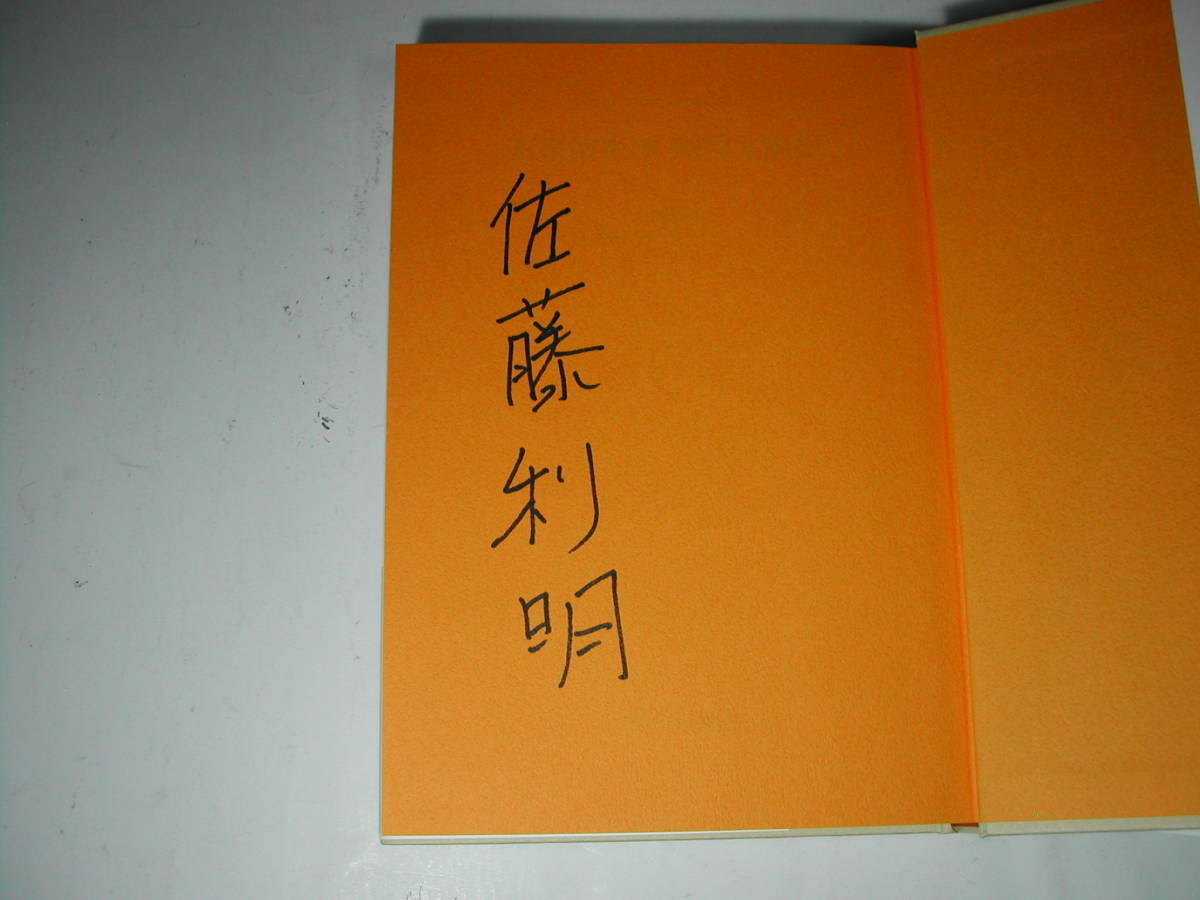 佐藤利明